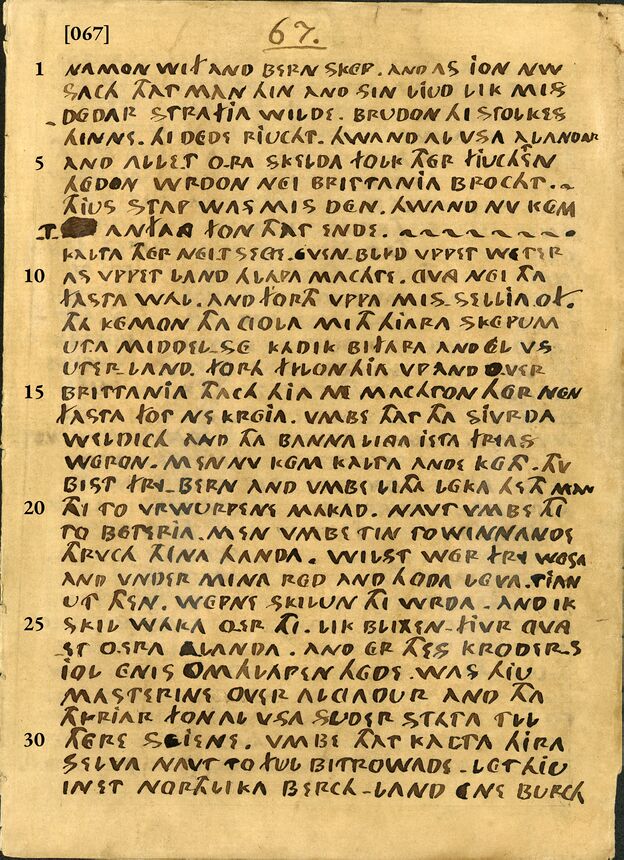 [067] 67.
1 NAMON WIF AND BERN SKEP. AND AS ION NW
SACH THAT MAN HIN AND SIN LIUD LIK MIS
DEDAR STRAFIA WILDE. BRUDON HI STOLKES
HINNE. HI DEDE RIUCHT. HWAND AL VSA ALANDAR
5 AND ALLET ORA SKELDA FOLK THER FIUCHTEN
HEDON WRDON NEI BRITTANIA BROCHT.
THIUS STAP WAS MIS DEN. HWAND NV KEM
T. ANFANG FON THAT ENDE.
KALTA THER NEI T SEGE. EVEN BLYD VPPET WETER
10 AS VPPET LAND HLAPA MACHTE. GVNG NEI THA
FASTA WAL. AND FORTH VPPA MIS-SELLIA OF.
THA KEMON THA GOLA MITH HIARA SKEPUM
UTA MIDDEL-SE KADIK BIFARA AND EL VS
UTER-LAND. FORTH FYLON HIA VP AND OVER
15 BRITTANIA THACH HIA NE MACHTON HER NEN
FASTA FOT NE KREIA. VMBE THAT THA SIVRDA
WELDICH AND THA BANNALINGA IETA FRIAS
WERON. MEN NV KEM KALTA ANDE KETH. THV
BIST FRY-BERN AND VMBE LITHA LEKA HETH MAN
20 THI TO VRWURPENE MAKAD. NAVT VMBE THI
TO BETERIA. MEN VMBE TIN TO WINNANDE
THRVCH THINA HANDA. WILST WER FRY WESA
AND VNDER MINA RED AND HODA LEVA. TIAN
UT THEN. WEPNE SKILUN THI WRDA. AND IK
25 SKIL WAKA OER THI. LIK BLIXEN-FIVR GVNG
ET OERA ALANDA. AND ER THES KRODER-S
IOL ENIS OMHLAPEN HEDE. WAS HIU
MASTERINE OVER ALGADUR AND THA
THYRIAR FON AL VSA SUDER STATA TIL
30 THERE SEIENE. VMBE THAT KALTA HIRA
SELVA NAVT TO FUL BITROWADE. LET HIU
INET NORTHLIKA BERCH-LAND ENE BURCH